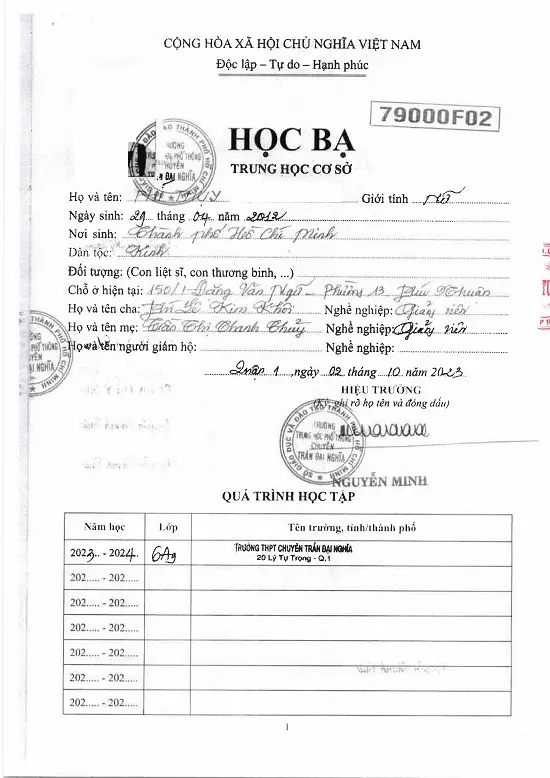 CỘNG HÒA XÃ HỘI CHỦ NGHĨA VIỆT NAM
Độc lập – Tự do – Hạnh phúc
79000F02
HỌC BẠ
TRUNG HỌC CƠ SỞ
Họ và tên: Giới tính nữ
Ngày sinh: 29 tháng 04 năm 2012
Nơi sinh: Thành phố Hồ Chí Minh
Dân tộc: Kinh
Đối tượng: (Con liệt sĩ, con thương binh, ...)
Chỗ ở hiện tại: 150/1 Đặng Văn Ngữ - Phường 13 Phú Nhuận
Họ và tên cha: Lê Kim Nghề nghiệp: Giảng viên
Họ và tên mẹ: Thị Thanh Thủy Nghề nghiệp: Giảng viên
Họ và tên người giám hộ: Nghề nghiệp:
Quận 1, ngày 02 tháng 10 năm 2023
HIỆU TRƯỞNG
(Ký, ghi rõ họ tên và đóng dấu)
TRƯỜNG
TRUNG HỌC PHỔ THÔNG
CHUYÊN
TRẦN ĐẠI NGHĨA
NGUYỄN MINH
QUÁ TRÌNH HỌC TẬP
Năm học Lớp Tên trường, tỉnh/thành phố
2023 - 2024 6A9 TRƯỜNG THPT CHUYÊN TRẦN ĐẠI NGHĨA
20 Lý Tự Trọng - Q.1
202..... - 202.....
202..... - 202.....
202..... - 202.....
202..... - 202.....
202..... - 202.....
202..... - 202.....
1